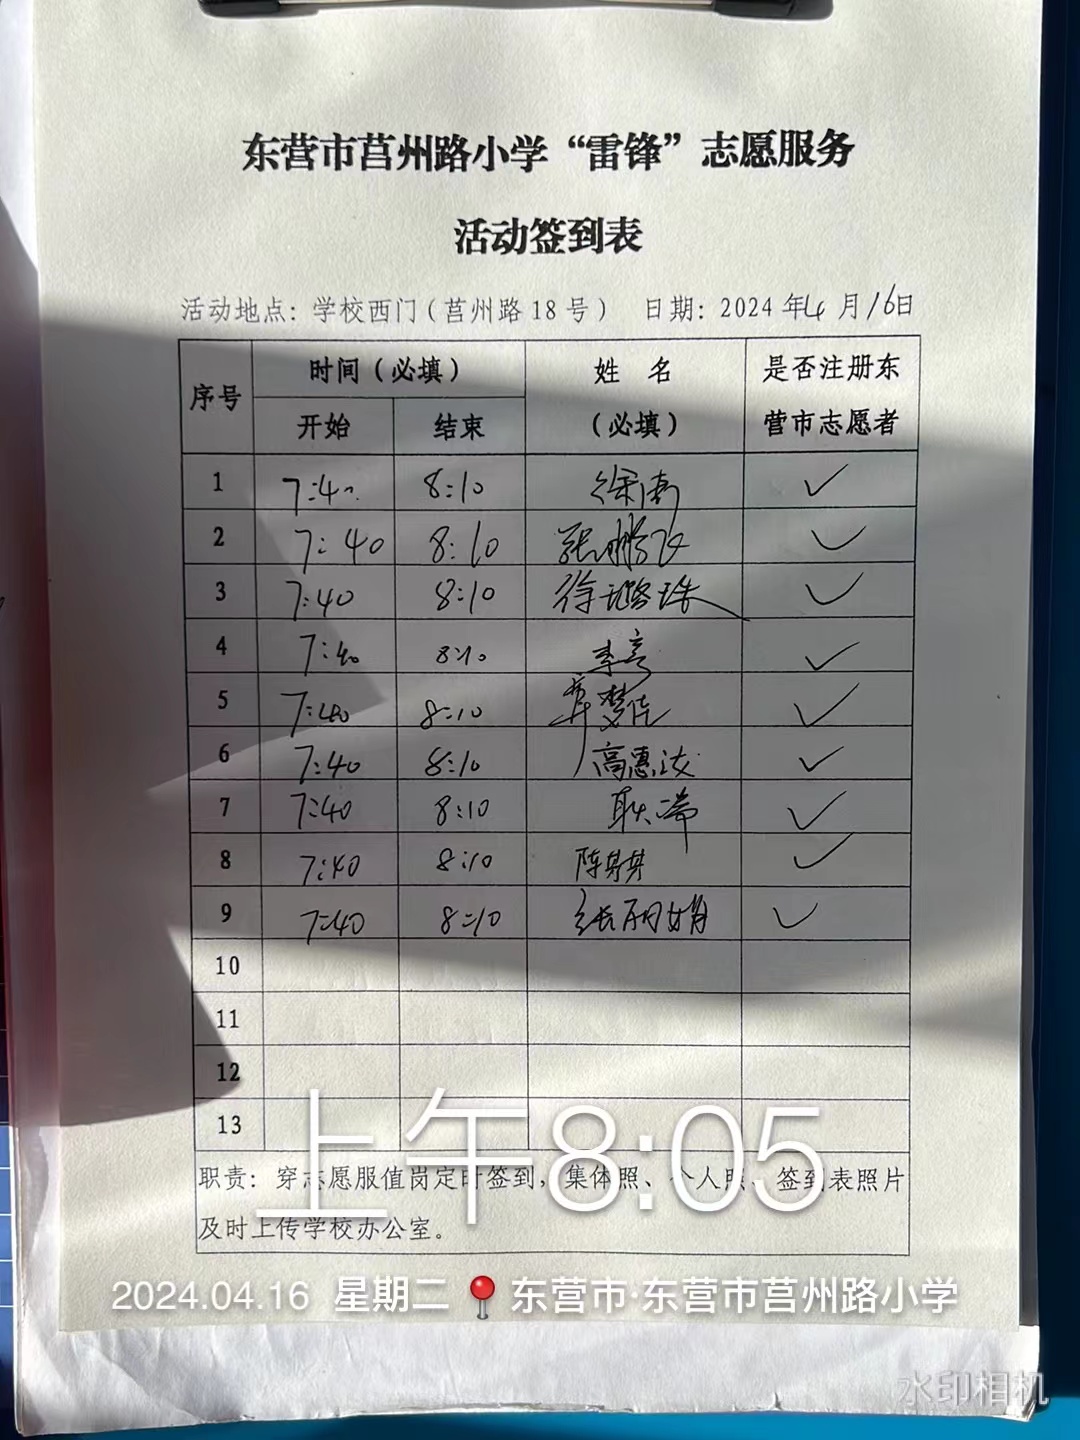 东营市莒州路小学“雷锋”志愿服务
活动签到表
活动地点：学校西门（莒州路18号） 日期：2024年4月16日
序号 时间（必填） 姓 名 是否注册东
开始 结束 （必填） 营市志愿者
1 7:40 8:10 ✓
2 7:40 8:10 张鹏飞 ✓
3 7:40 8:10 徐璐珠 ✓
4 7:40 8:10 李亮 ✓
5 7:40 8:10 ✓
6 7:40 8:10 高惠 ✓
7 7:40 8:10 耿瑞 ✓
8 7:40 8:10 陈男男 ✓
9 7:40 8:10 张丽娟 ✓
10
11
12
13
上午8:05
职责：穿志愿服值岗定时签到，集体照、个人照、签到表照片
及时上传学校办公室。
2024.04.16 星期二 东营市·东营市莒州路小学
水印相机